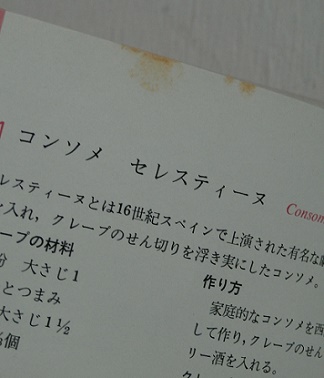 コンソメ セレスティーヌ
Consom
レスティーヌとは16世紀スペインで上演された有名な
入れ，クレープのせん切りを浮き実にしたコンソメ。
ープの材料
大さじ1
とつまみ
大さじ1½
個
作り方
家庭的なコンソメを西
して作り，クレープのせん
リー酒を入れる。